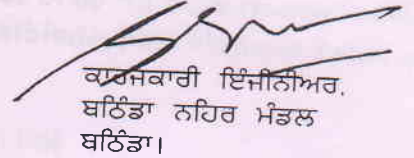 ਕਾਰਜਕਾਰੀ ਇੰਜੀਨੀਅਰ,
ਬਠਿੰਡਾ ਨਹਿਰ ਮੰਡਲ
ਬਠਿੰਡਾ।